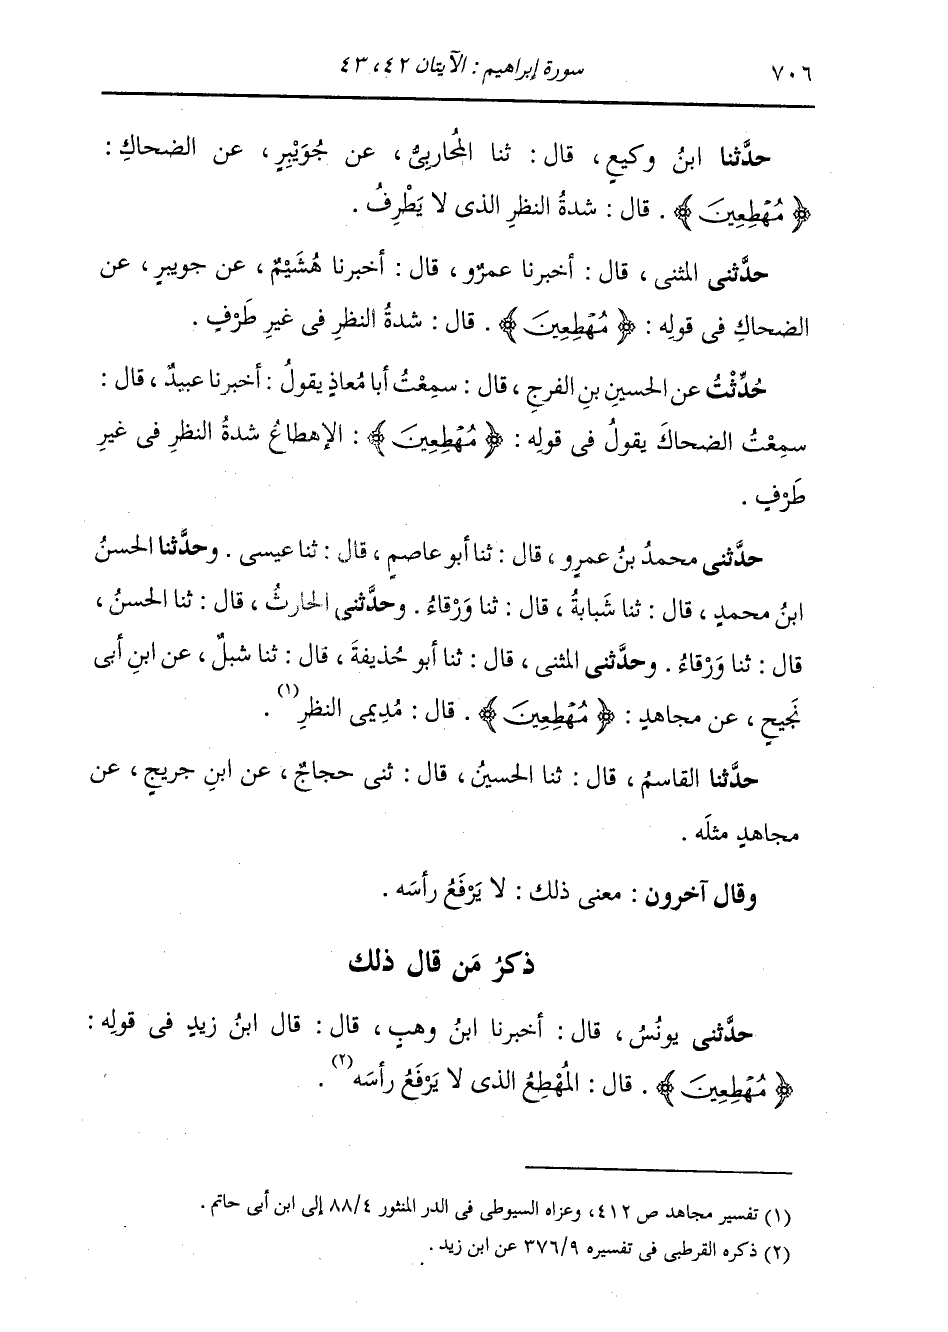 ٧٠٦ سورة إبراهيم : الآيتان ٤٢ ، ٤٣
حدَّثنا ابنُ وكيعٍ ، قال : ثنا المُحاربىُّ ، عن جُوَيْبِرٍ ، عن الضحاكِ :
﴿ مُهْطِعِينَ ﴾ . قال : شدةُ النظرِ الذى لا يَطْرِفُ .
حدَّثنى المثنى ، قال : أخبرنا عمرٌو ، قال : أخبرنا هُشَيْمٌ ، عن جويبرٍ ، عن
الضحاكِ فى قولِه : ﴿ مُهْطِعِينَ ﴾ . قال : شدةُ النظرِ فى غيرِ طَرْفٍ .
حُدِّثْتُ عن الحسينِ بنِ الفرجِ ، قال : سمِعْتُ أبا مُعاذٍ يقولُ : أخبرنا عبيدٌ ، قال :
سمِعْتُ الضحاكَ يقولُ فى قولِه : ﴿ مُهْطِعِينَ ﴾ : الإهطاعُ شدةُ النظرِ فى غيرِ
طَرْفٍ .
حدَّثنى محمدُ بنُ عمرٍو ، قال : ثنا أبو عاصمٍ ، قال : ثنا عيسى . وحدَّثنا الحسنُ
ابنُ محمدٍ ، قال : ثنا شَبابةُ ، قال : ثنا وَرْقاءُ . وحدَّثنى الحارثُ ، قال : ثنا الحسنُ ،
قال : ثنا وَرْقاءُ . وحدَّثنى المثنى ، قال : ثنا أبو حُذيفةَ ، قال : ثنا شبلٌ ، عن ابنِ أبى
نَجيحٍ ، عن مجاهدٍ : ﴿ مُهْطِعِينَ ﴾ . قال : مُديمى النظرِ(١) .
حدَّثنا القاسمُ ، قال : ثنا الحسينُ ، قال : ثنى حجاجٌ ، عن ابنِ جريجٍ ، عن
مجاهدٍ مثلَه .
وقال آخرون : معنى ذلك : لا يَرْفَعُ رأسَه .
ذكرُ مَن قال ذلك
حدَّثنى يونُسُ ، قال : أخبرنا ابنُ وهبٍ ، قال : قال ابنُ زيدٍ فى قولِه :
﴿ مُهْطِعِينَ ﴾ . قال : المُهْطِعُ الذى لا يَرْفَعُ رأسَه(٢) .
(١) تفسير مجاهد ص ٤١٢ ، وعزاه السيوطى فى الدر المنثور ٨٨/٤ إلى ابن أبى حاتم .
(٢) ذكره القرطبى فى تفسيره ٣٧٦/٩ عن ابن زيد .